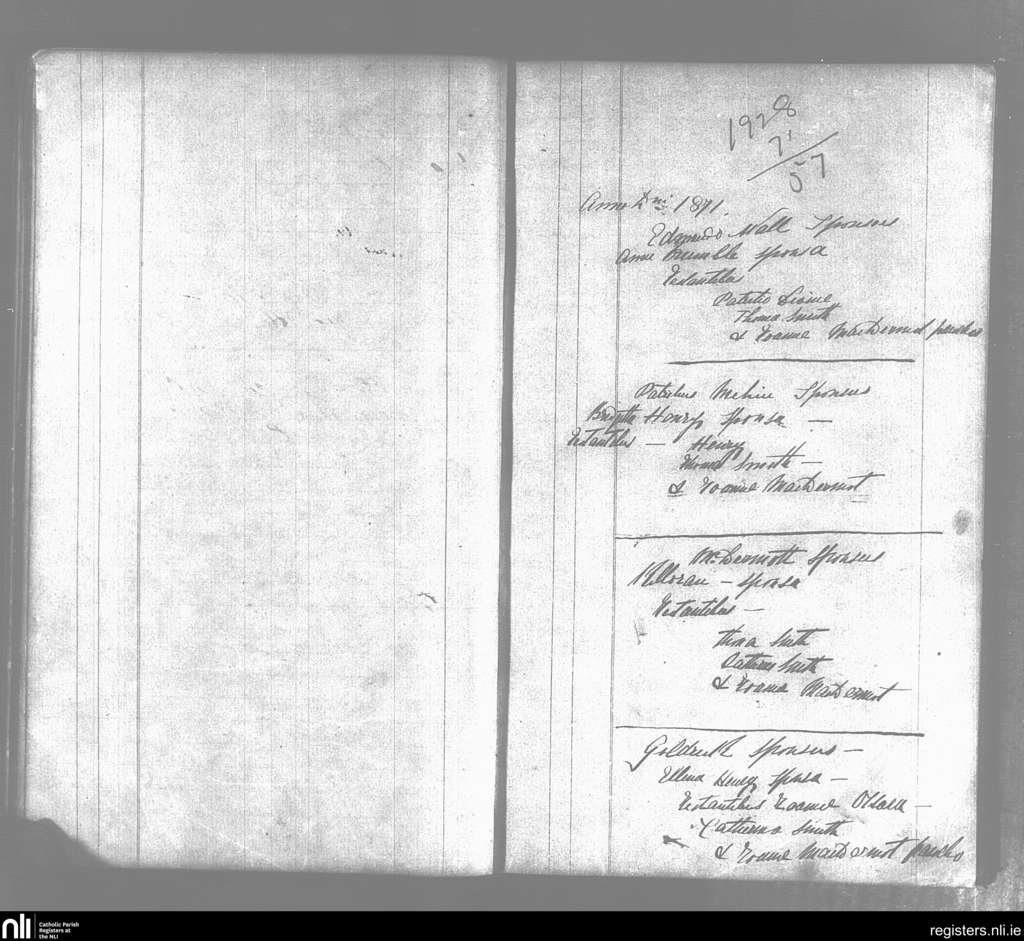 1928
71
57
Anno Dni 1871.
Edmundo Wall Sponsus
Anne sponsa
Testantibus
Patritio
Thoma Smith
& Joanne MacDermot parocho
Patritius Sponsus
Brigitta Henry sponsa —
Testantibus — Henry
Thoma Smith —
& Joanne MacDermot
McDermott Sponsus
Killoran — sponsa
Testantibus —
Thoma Smith
Catherina Smith
& Joanne MacDermot
Goldrick sponsus —
Ellena Henry sponsa —
Testantibus Joanne —
Catherina Smith
& Joanne MacDermot parocho
nli
Catholic Parish
Registers at
the NLI
registers.nli.ie